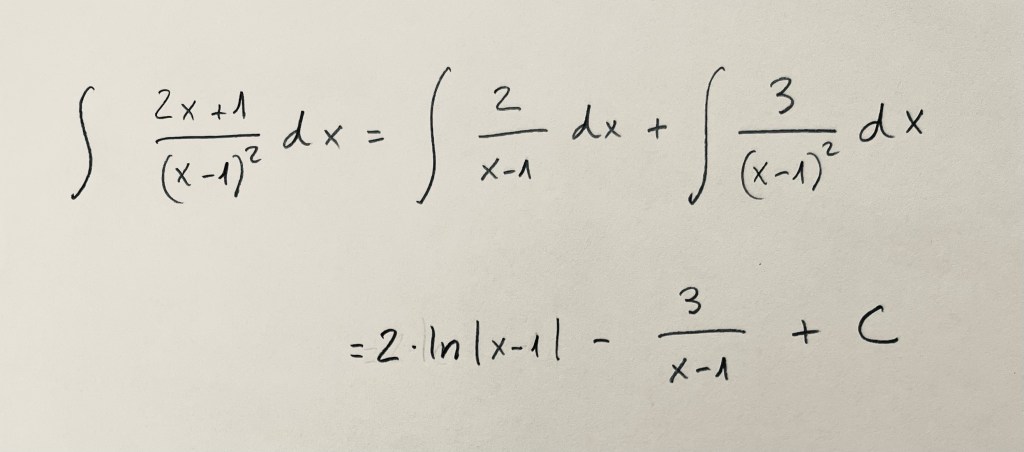 ∫ (2x+1)/(x-1)² dx = ∫ 2/(x-1) dx + ∫ 3/(x-1)² dx
= 2·ln|x-1| - 3/(x-1) + C